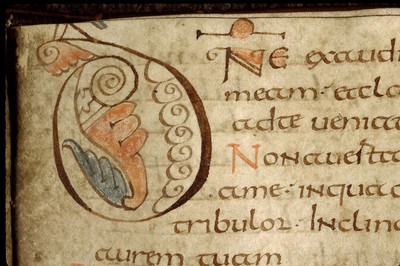 DNE exaudi
meam· et cla
adte ueniat
Nonauerta
ame· inquac
tribulor· Inclin
aurem tuam